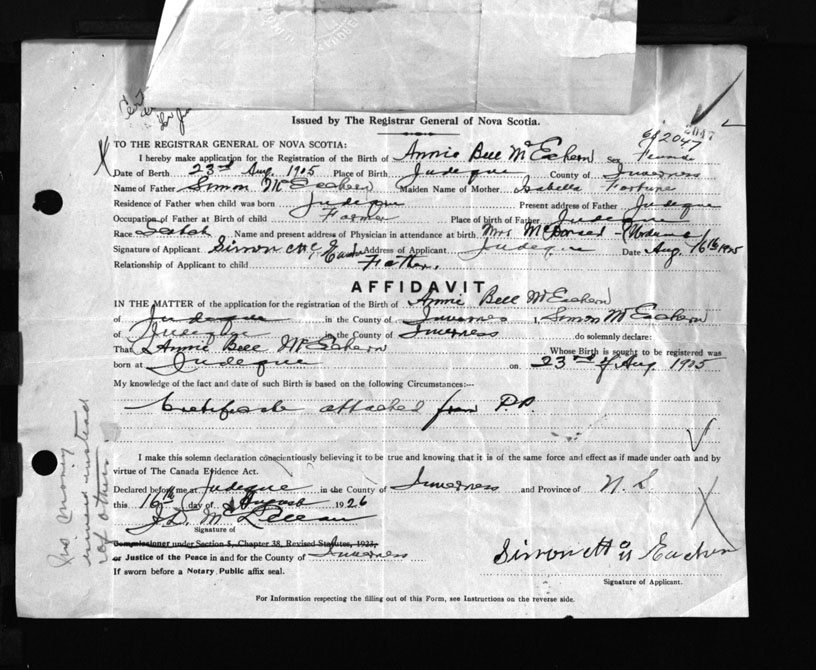 Issued by The Registrar General of Nova Scotia.
2047
6J 2047
TO THE REGISTRAR GENERAL OF NOVA SCOTIA:
I hereby make application for the Registration of the Birth of Annie Bell McEachern Sex Female
Date of Birth 23rd Aug. 1905 Place of Birth Judique County of Inverness
Name of Father Simon McEachern Maiden Name of Mother Isabella Fortune
Residence of Father when child was born Judique Present address of Father Judique
Occupation of Father at Birth of child Farmer Place of birth of Father Judique
Race Scotch Name and present address of Physician in attendance at birth Mrs
Signature of Applicant Simon Mc Address of Applicant Judique Date Aug. 16th
Relationship of Applicant to child Father.
AFFIDAVIT
IN THE MATTER of the application for the registration of the Birth of Annie Bell McEachern
of Judique in the County of Inverness I, Simon McEachern
of Judique in the County of Inverness do solemnly declare:
That Annie Bell McEachern Whose Birth is sought to be registered was
born at Judique on 23rd of Aug 1905
My knowledge of the fact and date of such Birth is based on the following Circumstances:—
Certificate attached from P.P.
I make this solemn declaration conscientiously believing it to be true and knowing that it is of the same force and effect as if made under oath and by
virtue of The Canada Evidence Act.
Declared before me at Judique in the County of Inverness and Province of N. S
this 16th day of August 1926
Signature of
Commissioner under Section 5, Chapter 38, Revised Statutes, 1923,
or Justice of the Peace in and for the County of Inverness
If sworn before a Notary Public affix seal.
Simon Mc Eachern
Signature of Applicant.
For Information respecting the filling out of this Form, see Instructions on the reverse side.
No money
instead
of others